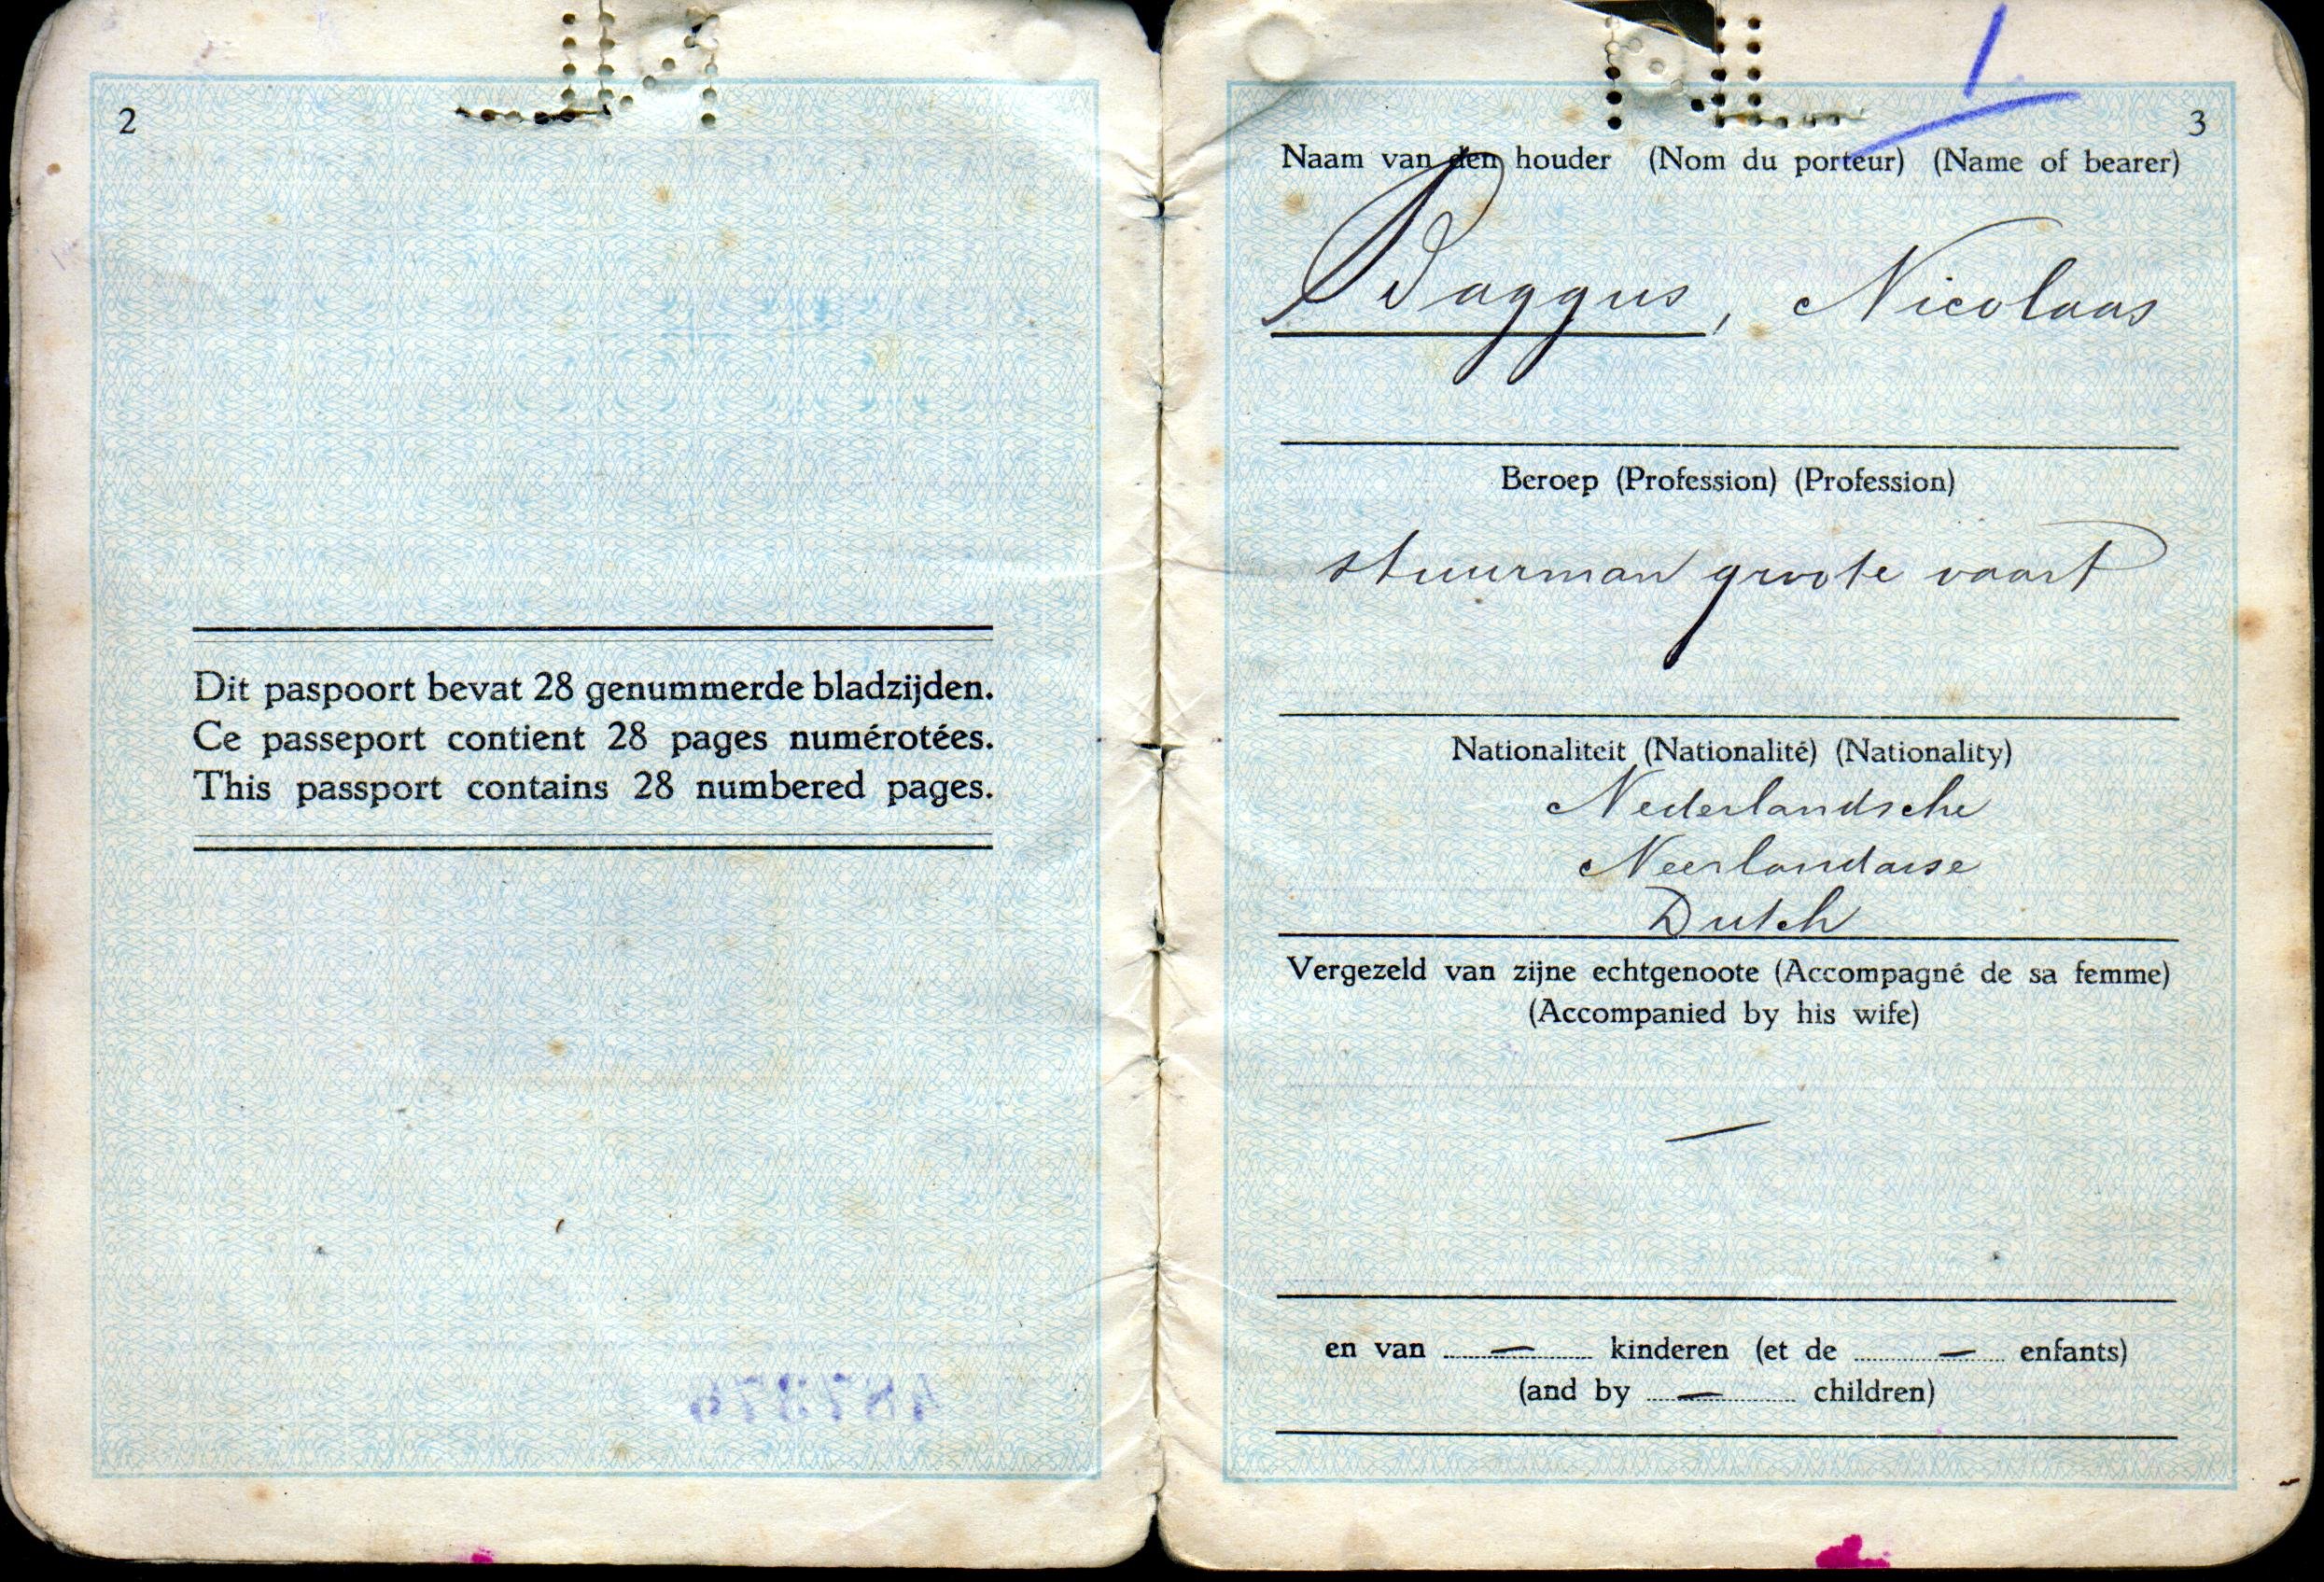 2
Dit paspoort bevat 28 genummerde bladzijden.
Ce passeport contient 28 pages numérotées.
This passport contains 28 numbered pages.
1
3
Naam van den houder (Nom du porteur) (Name of bearer)
Baggus, Nicolaas
Beroep (Profession) (Profession)
stuurman groote vaart
Nationaliteit (Nationalité) (Nationality)
Nederlandsche
Neerlandaise
Dutch
Vergezeld van zijne echtgenoote (Accompagné de sa femme)
(Accompanied by his wife)
—
en van — kinderen (et de — enfants)
(and by — children)